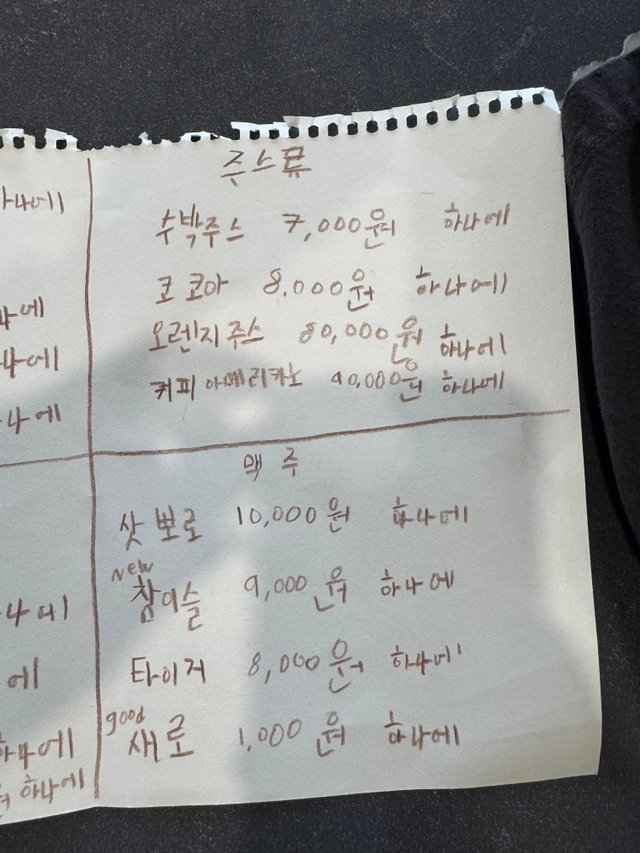 주스류
수박주스 7,000원 하나에
코코아 8.000원 하나에
오렌지주스 80,000원 하나에
커피 아메리카노 90,000원 하나에
맥주
삿뽀로 10,000원 하나에
New
참이슬 9,000원 하나에
타이거 8,000원 하나에
good
새로 1,000원 하나에
하나에
하나에
하나에
하나에
하나에
에
하나에
하나에